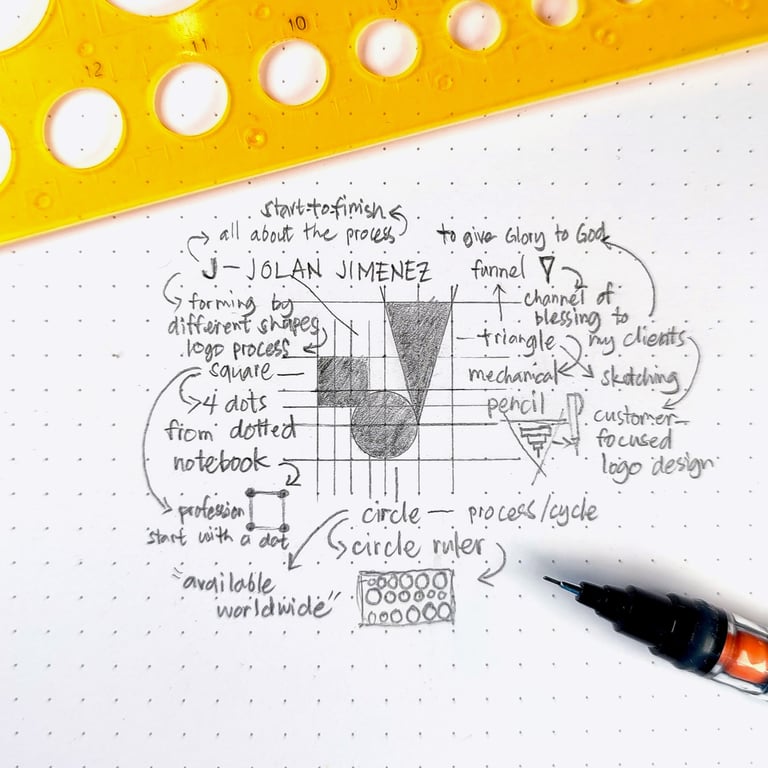 12
11
10
9
start-to-finish
all about the process
J - JOLAN JIMENEZ
forming by
different shapes
logo process
square
4 dots
from dotted
notebook
profession
start with a dot
to give Glory to God
funnel
channel of
blessing to
my clients
triangle
mechanical
pencil
sketching
customer-
focused
logo design
circle — process/cycle
circle ruler
"available
worldwide"